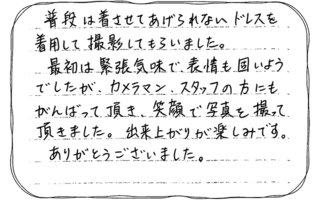 普段は着させてあげられないドレスを
着用して撮影してもらいました。
最初は緊張気味で、表情も固いよう
でしたが、カメラマン、スタッフの方にも
がんばって頂き、笑顔で写真を撮って
頂きました。出来上がりが楽しみです。
ありがとうございました。